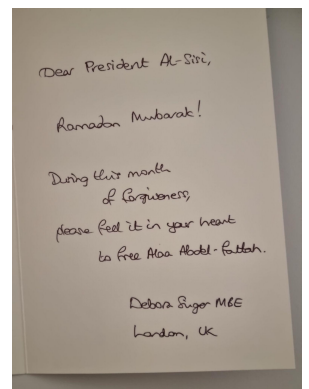 Dear President Al-Sisi,
Ramadan Mubarak!
During this month
of forgiveness,
please feel it in your heart
to free Alaa Abdel-Fattah.
Debora Singer MBE
London, UK